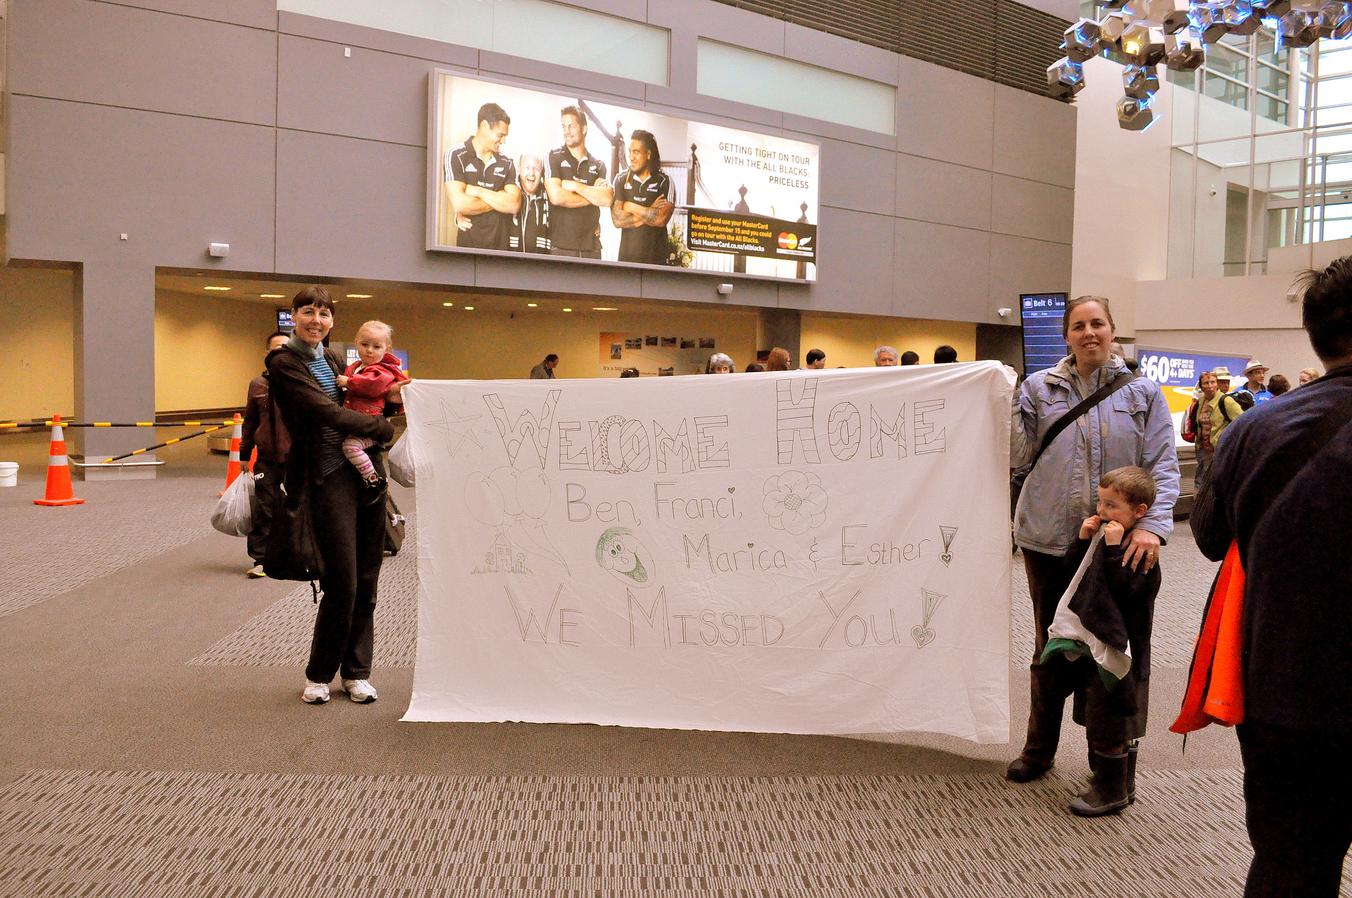 GETTING TIGHT ON TOUR
WITH THE ALL BLACKS:
PRICELESS
Register and use your MasterCard
before September 15 and you could
go on tour with the All Blacks.
Visit MasterCard.co.nz/allblacks
MasterCard
Belt 6
$60 OFF
4+ DAYS
WELCOME HOME
Ben, Franci,
Marica & Esther!
WE MISSED YOU!